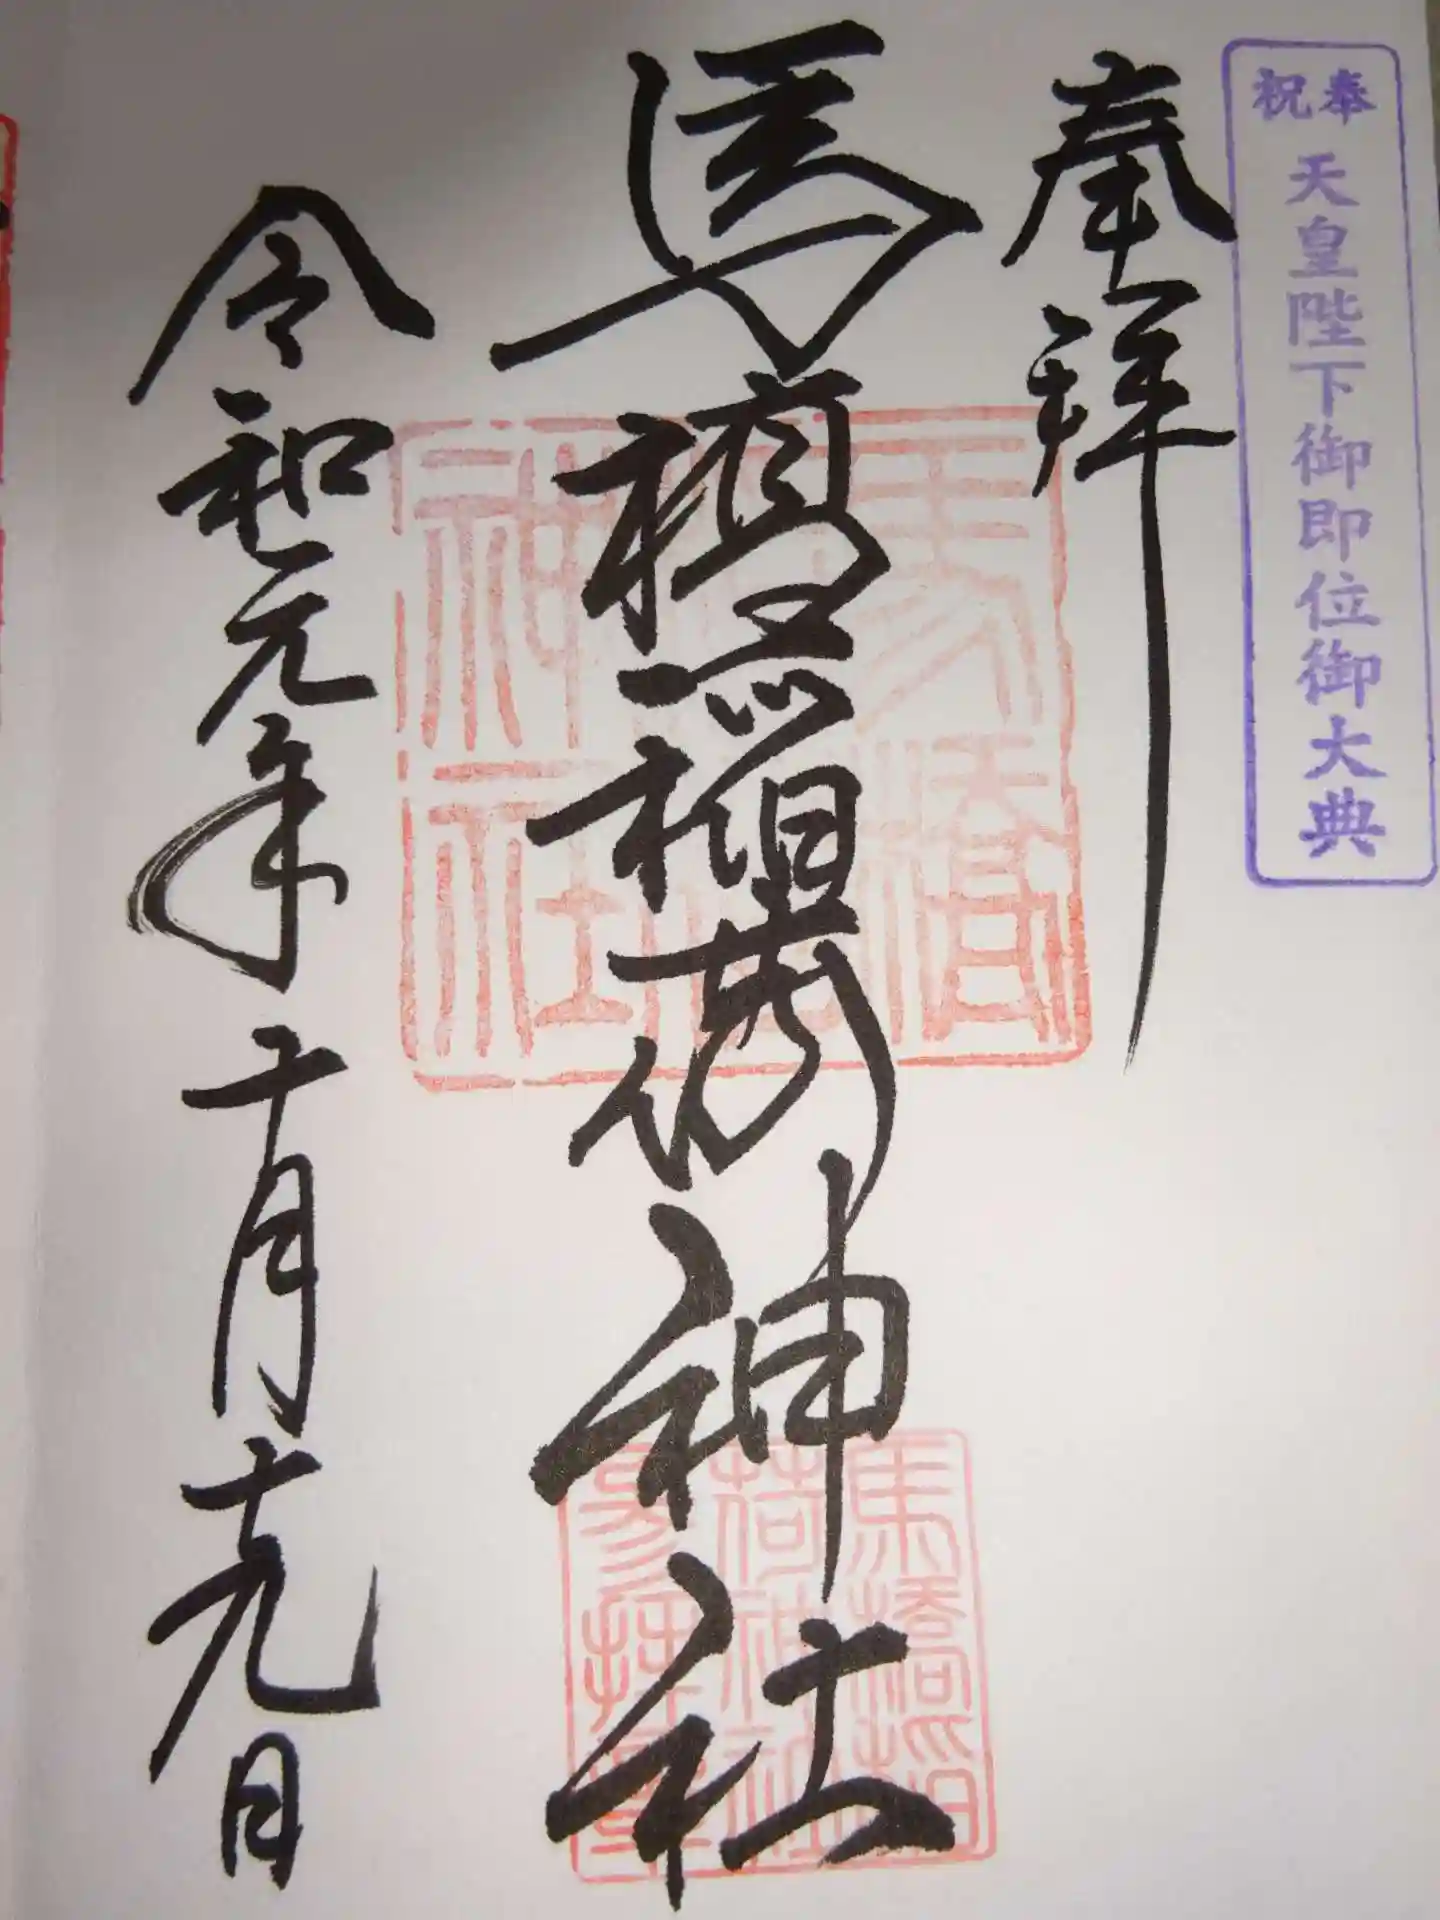 奉祝
天皇陛下御即位御大典
奉拝
馬橋稲荷神社
令和元年十月十九日
馬橋
稲荷
神社
馬橋稲
荷神社
参拝章